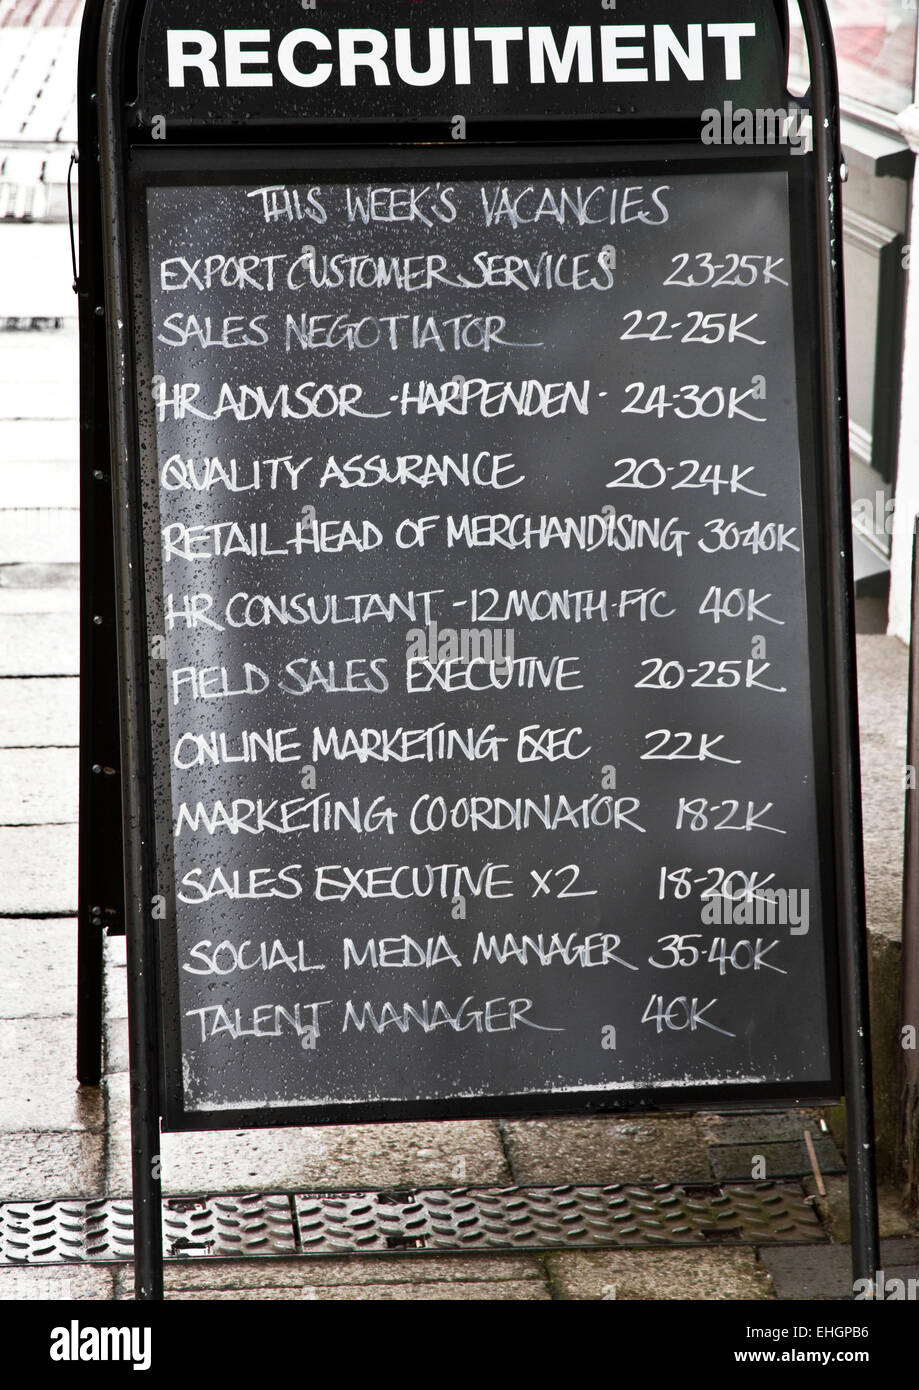 RECRUITMENT
THIS WEEK'S VACANCIES
EXPORT CUSTOMER SERVICES 23-25K
SALES NEGOTIATOR 22-25K
HR ADVISOR - HARPENDEN - 24-30K
QUALITY ASSURANCE 20-24K
RETAIL HEAD OF MERCHANDISING 30-40K
HR CONSULTANT - 12 MONTH FTC 40K
FIELD SALES EXECUTIVE 20-25K
ONLINE MARKETING EXEC 22K
MARKETING COORDINATOR 18-2K
SALES EXECUTIVE X2 18-20K
SOCIAL MEDIA MANAGER 35-40K
TALENT MANAGER 40K
alamy
alamy stock photo
EHGPB6
www.alamy.com